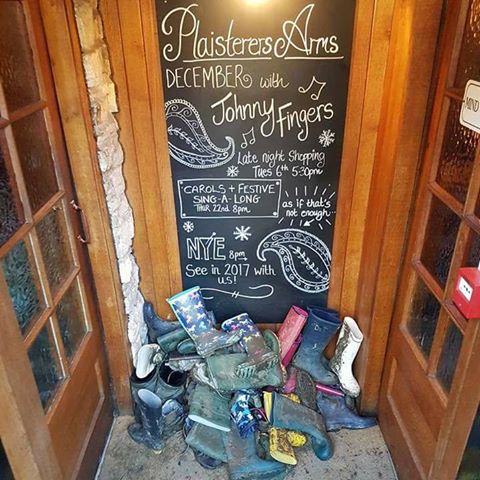 Plaisterers Arms
DECEMBER with
Johnny Fingers
Late night Shopping
Tues 6th 5:30pm
CAROLS + FESTIVE
SING-A-LONG
THUR 22nd 8pm
as if that's
not enough...
NYE 8pm
See in 2017 with
us!
MIND